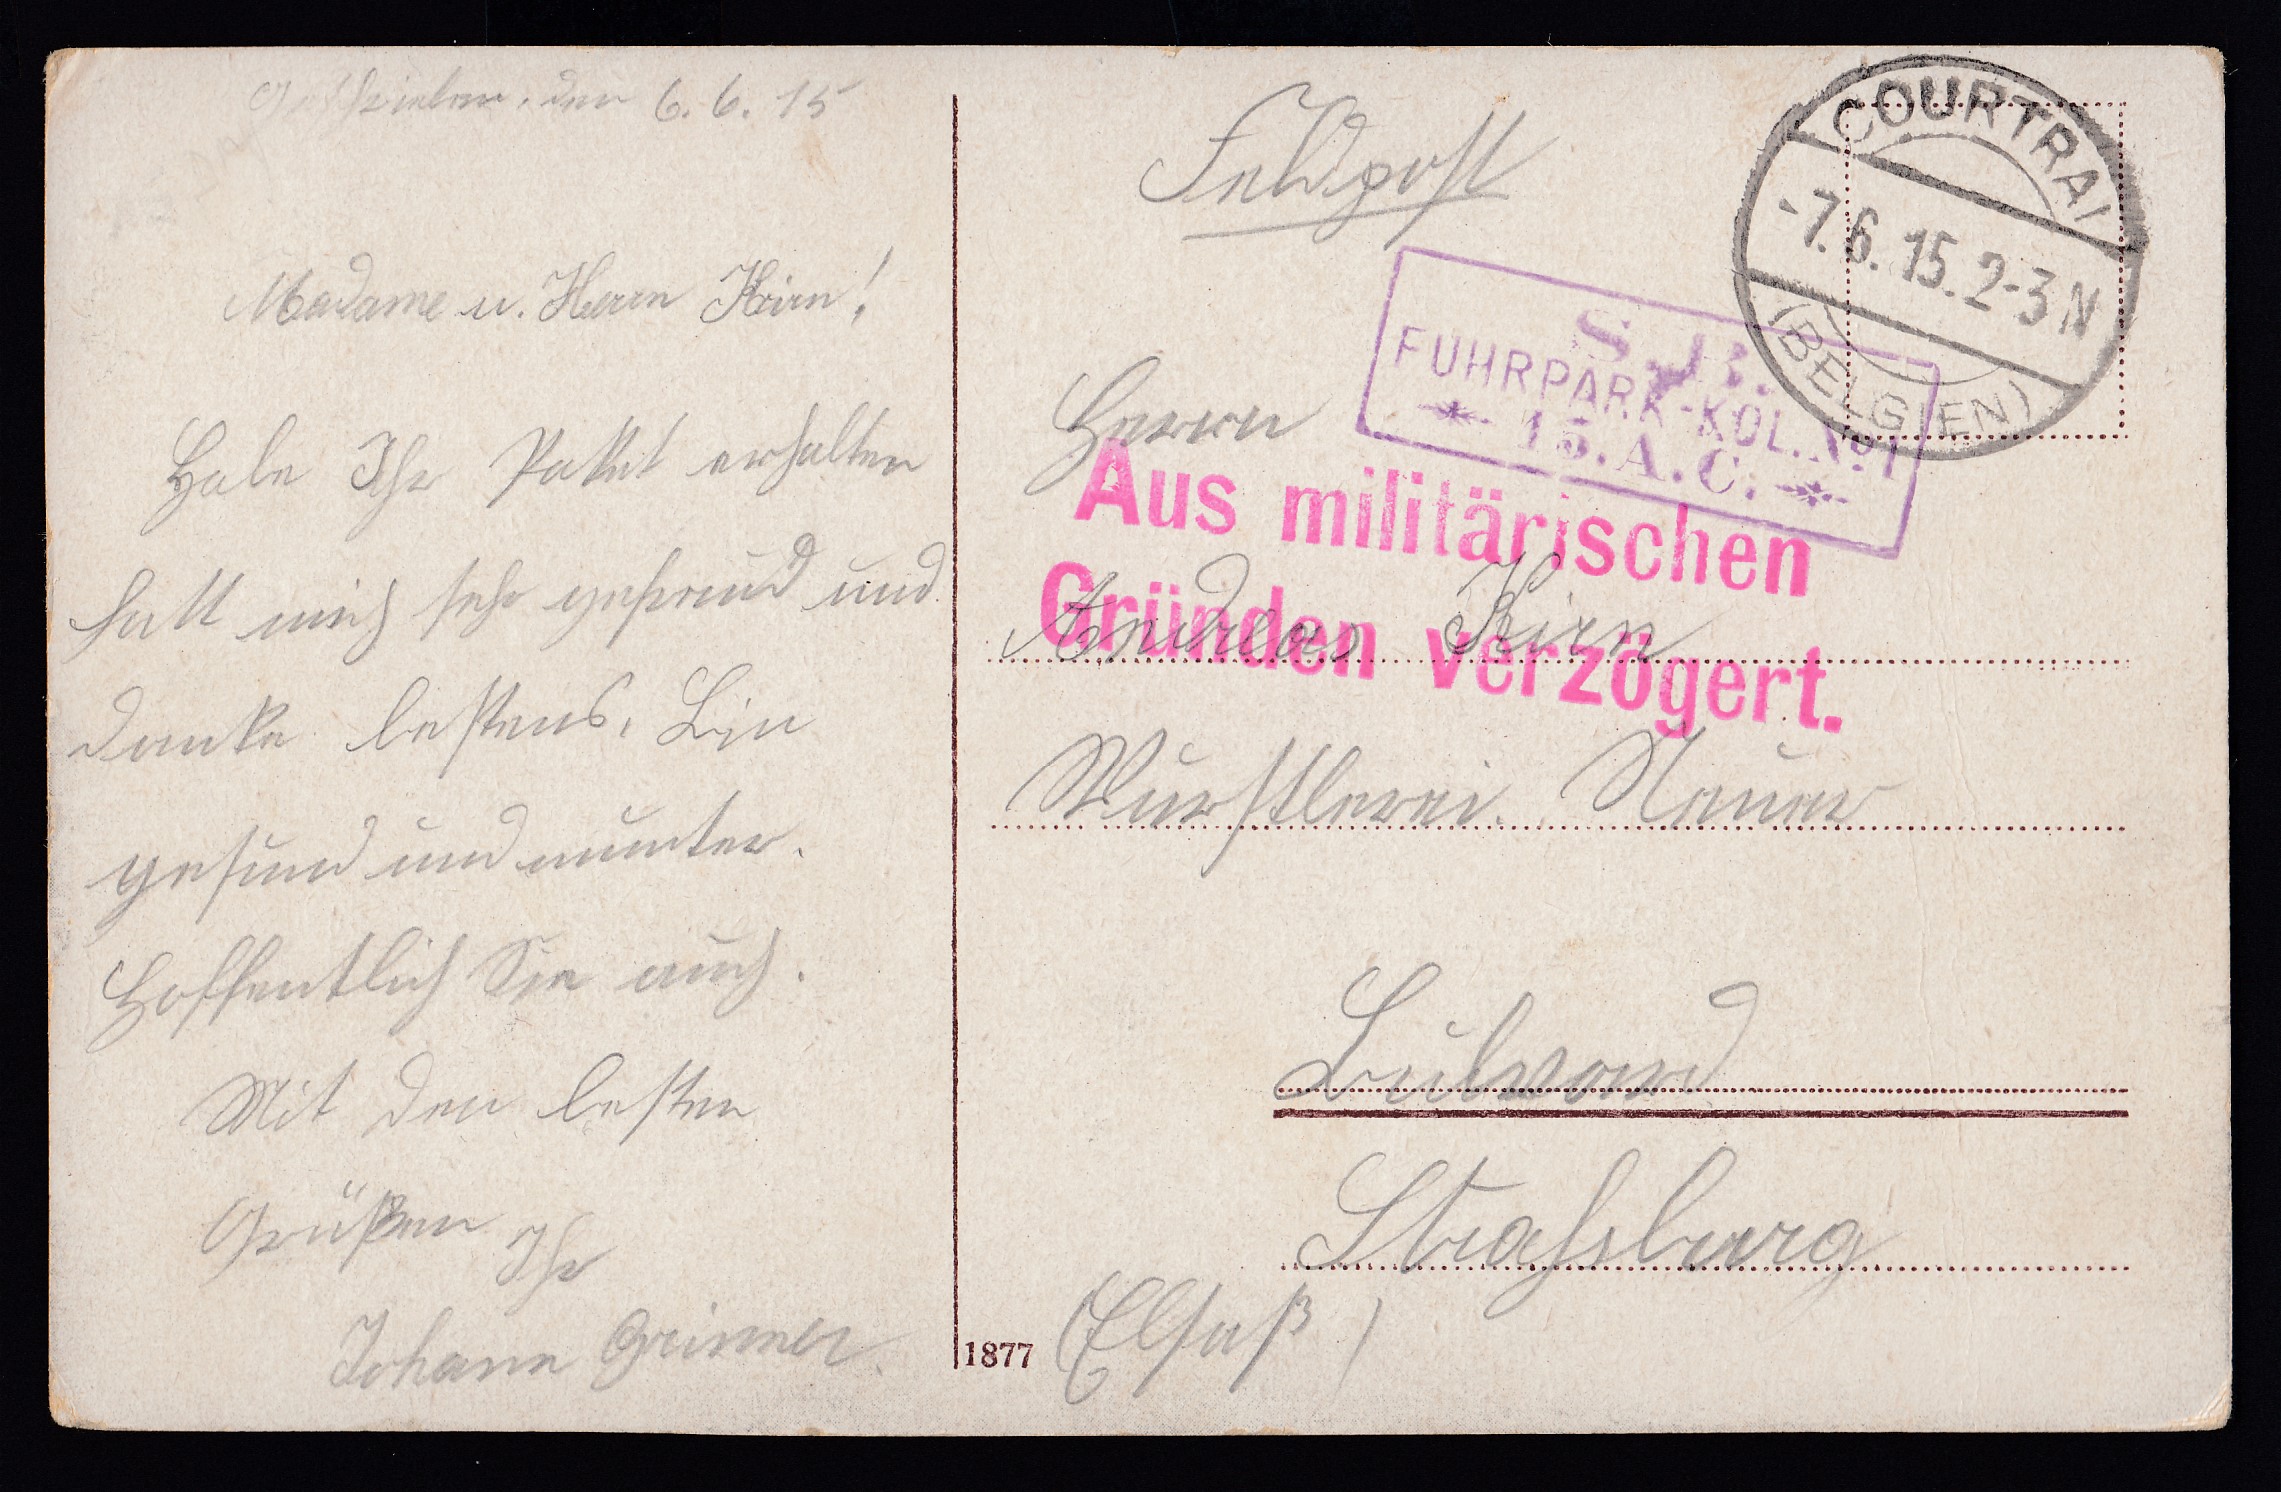 den 6. 6. 15
Madame u. Herrn Kirn!
Habe Ihr Paket erhalten
hatt mich sehr gefreud und
danke bestens. Bin
gesund und munter.
Hoffentlich Sie auch.
Mit den besten
Grüßen
Ihr
Johann
Feldpost
COURTRAI
-7.6.15.2-3N
(BELGIEN)
S.B.
FUHRPARK-KOL. No 1
15. A. C.
Herrn
Aus militärischen
Gründen verzögert.
Andreas Kirn
Wurstlerei. Neuer
Bulvard
Strassburg
(Elsaß)
1877